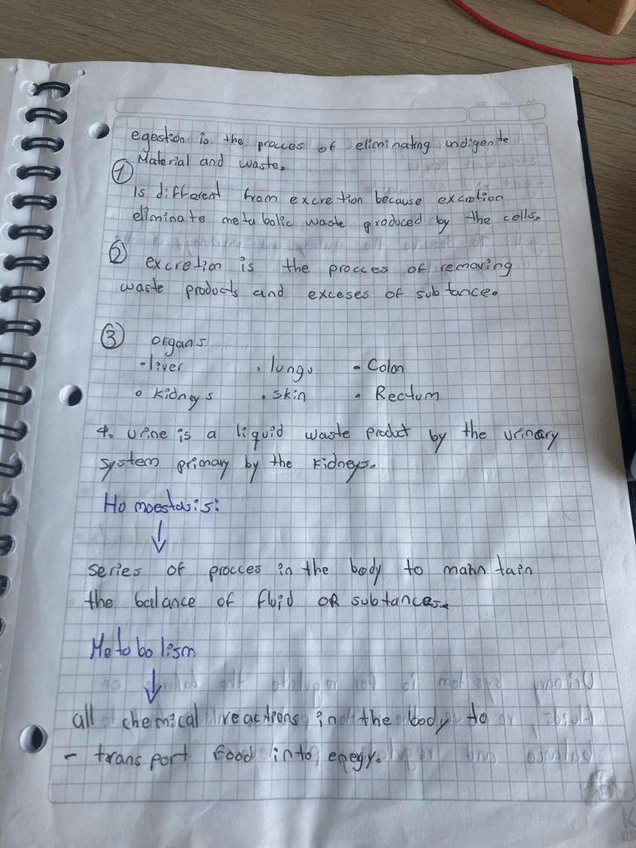 egestion is the procces of eliminating undigente
① Material and waste.
Is different from excretion because excretion
eliminate metabolic waste produced by the cells.
② excretion is the procces of removing
waste products and exceses of subtance.
③ organs
- liver • lungs - Colon
• kidneys • skin • Rectum
4. Urine is a liquid waste product by the urinary
system primary by the kidneys.
Homoestasis:
↓
series of procces in the body to mahntain
the balance of fluid OR subtances.
Metabolism
↓
all chemical reactions in the body to
- transport food into enegy.